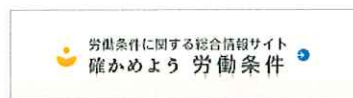 労働条件に関する総合情報サイト
確かめよう 労働条件